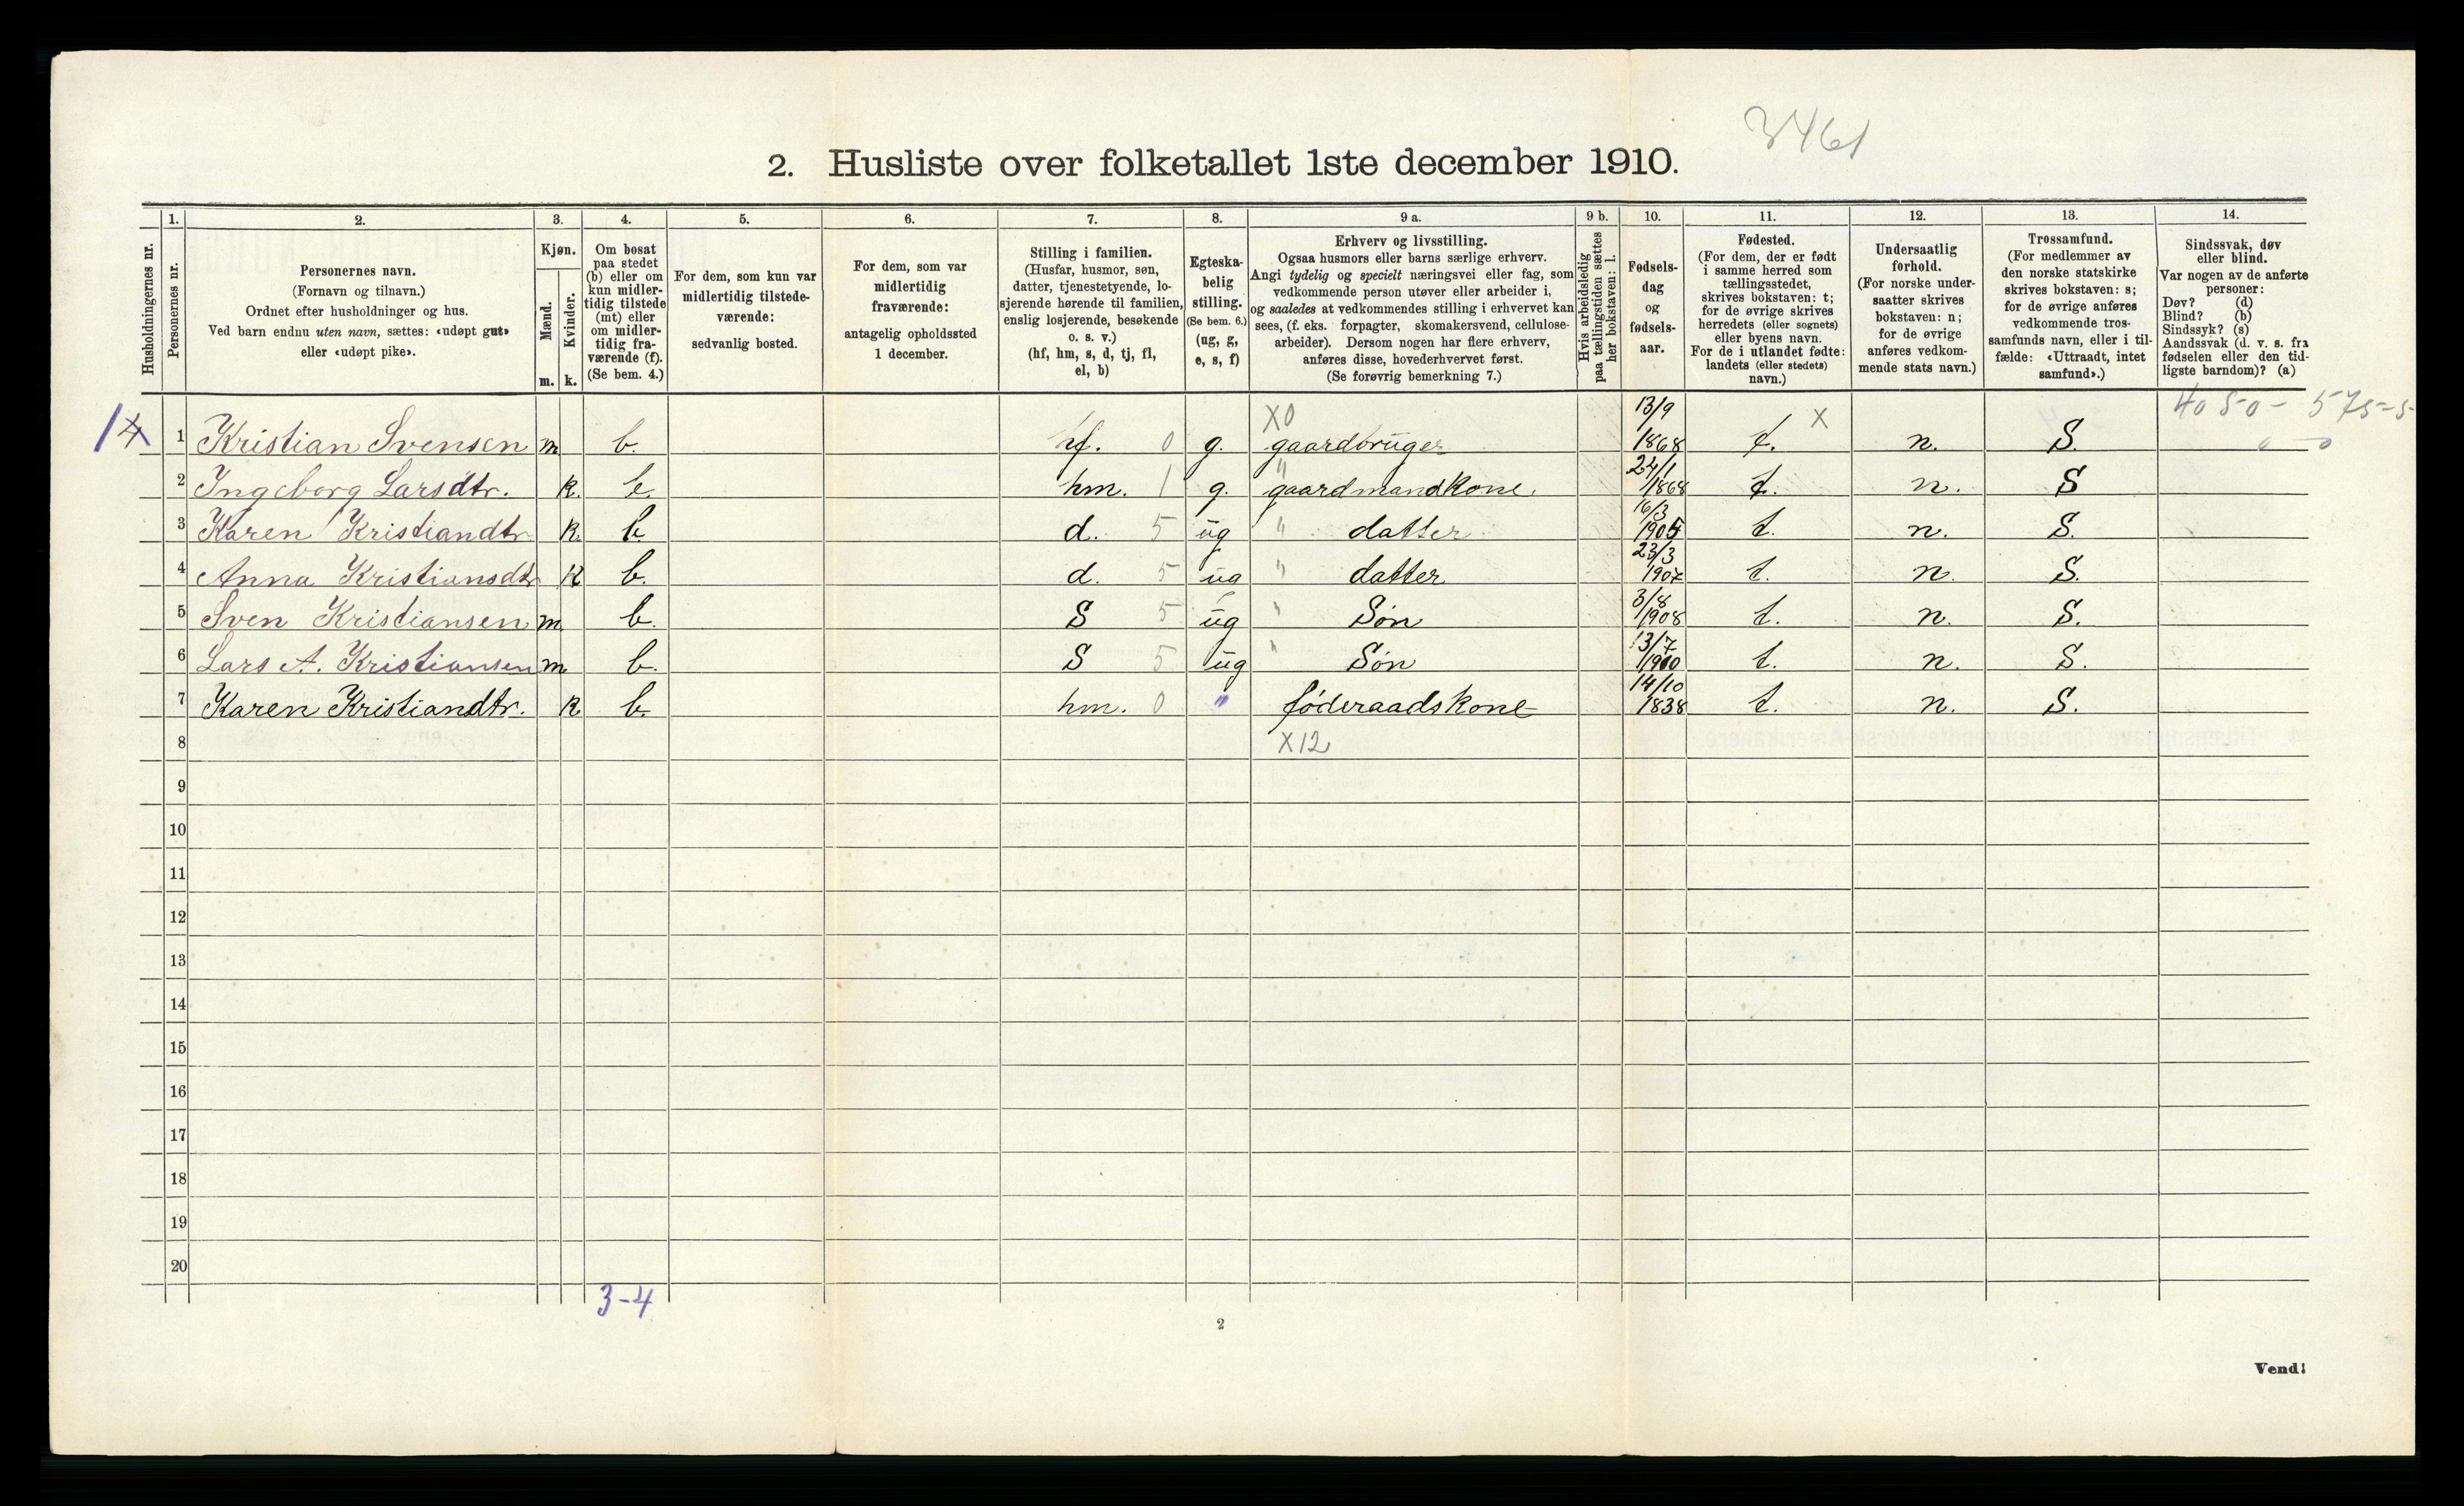 3461
2. Husliste over folketallet 1ste december 1910.
1. 2. 3. 4. 5. 6. 7. 8. 9 a. 9 b. 10. 11. 12. 13. 14.
Husholdningernes nr.
Personernes nr.
Personernes navn.
(Fornavn og tilnavn.)
Ordnet efter husholdninger og hus.
Ved barn endnu uten navn, sættes: «udøpt gut»
eller «udøpt pike».
Kjøn.
Mænd.
Kvinder.
m. k.
Om bosat
paa stedet
(b) eller om
kun midler-
tidig tilstede
(mt) eller
om midler-
tidig fra-
værende (f).
(Se bem. 4.)
For dem, som kun var
midlertidig tilstede-
værende:
sedvanlig bosted.
For dem, som var
midlertidig
fraværende:
antagelig opholdssted
1 december.
Stilling i familien.
(Husfar, husmor, søn,
datter, tjenestetyende, lo-
sjerende hørende til familien,
enslig losjerende, besøkende
o. s. v.)
(hf, hm, s, d, tj, fl,
el, b)
Egteska-
belig
stilling.
(Se bem. 6.)
(ug, g,
e, s, f)
Erhverv og livsstilling.
Ogsaa husmors eller barns særlige erhverv.
Angi tydelig og specielt næringsvei eller fag, som
vedkommende person utøver eller arbeider i,
og saaledes at vedkommendes stilling i erhvervet kan
sees, (f. eks. forpagter, skomakersvend, cellulose-
arbeider). Dersom nogen har flere erhverv,
anføres disse, hovederhvervet først.
(Se forøvrig bemerkning 7.)
Hvis arbeidsledig
paa tællingstiden sættes
her bokstaven: l.
Fødsels-
dag
og
fødsels-
aar.
Fødested.
(For dem, der er født
i samme herred som
tællingsstedet,
skrives bokstaven: t;
for de øvrige skrives
herredets (eller sognets)
eller byens navn.
For de i utlandet fødte:
landets (eller stedets)
navn.)
Undersaatlig
forhold.
(For norske under-
saatter skrives
bokstaven: n;
for de øvrige
anføres vedkom-
mende stats navn.)
Trossamfund.
(For medlemmer av
den norske statskirke
skrives bokstaven: s;
for de øvrige anføres
vedkommende tros-
samfunds navn, eller i til-
fælde: «Uttraadt, intet
samfund».)
Sindssvak, døv
eller blind.
Var nogen av de anførte
personer:
Døv? (d)
Blind? (b)
Sindssyk? (s)
Aandssvak (d. v. s. fra
fødselen eller den tid-
ligste barndom)? (a)
X0 13/9 X
1 Kristian Svensen m b. hf. 0 g. gaardbruger 1868 t. n. S.
2 Ingeborg Larsdtr. k. b. hm. 1 g. " gaardmandkone. 24/1 1868 t. n. S
3 Karen Kristiandtr k. b. d. 5 ug " datter 16/3 1905 t. n. S.
4 Anna Kristiansdtr k b. d. 5 ug " datter 23/3 1907 t. n. S.
5 Sven Kristiansen m b. S 5 ug " Søn 3/8 1908 t. n. S.
6 Lars A. Kristiansen m b. S 5 ug " Søn 13/7 1910 t. n. S.
7 Karen Kristiandtr. k b. hm. 0 " føderaadskone 14/10 1838 t. n. S.
8 X12
9
10
11
12
13
14
15
16
17
18
19
20
3-4
2
Vend!